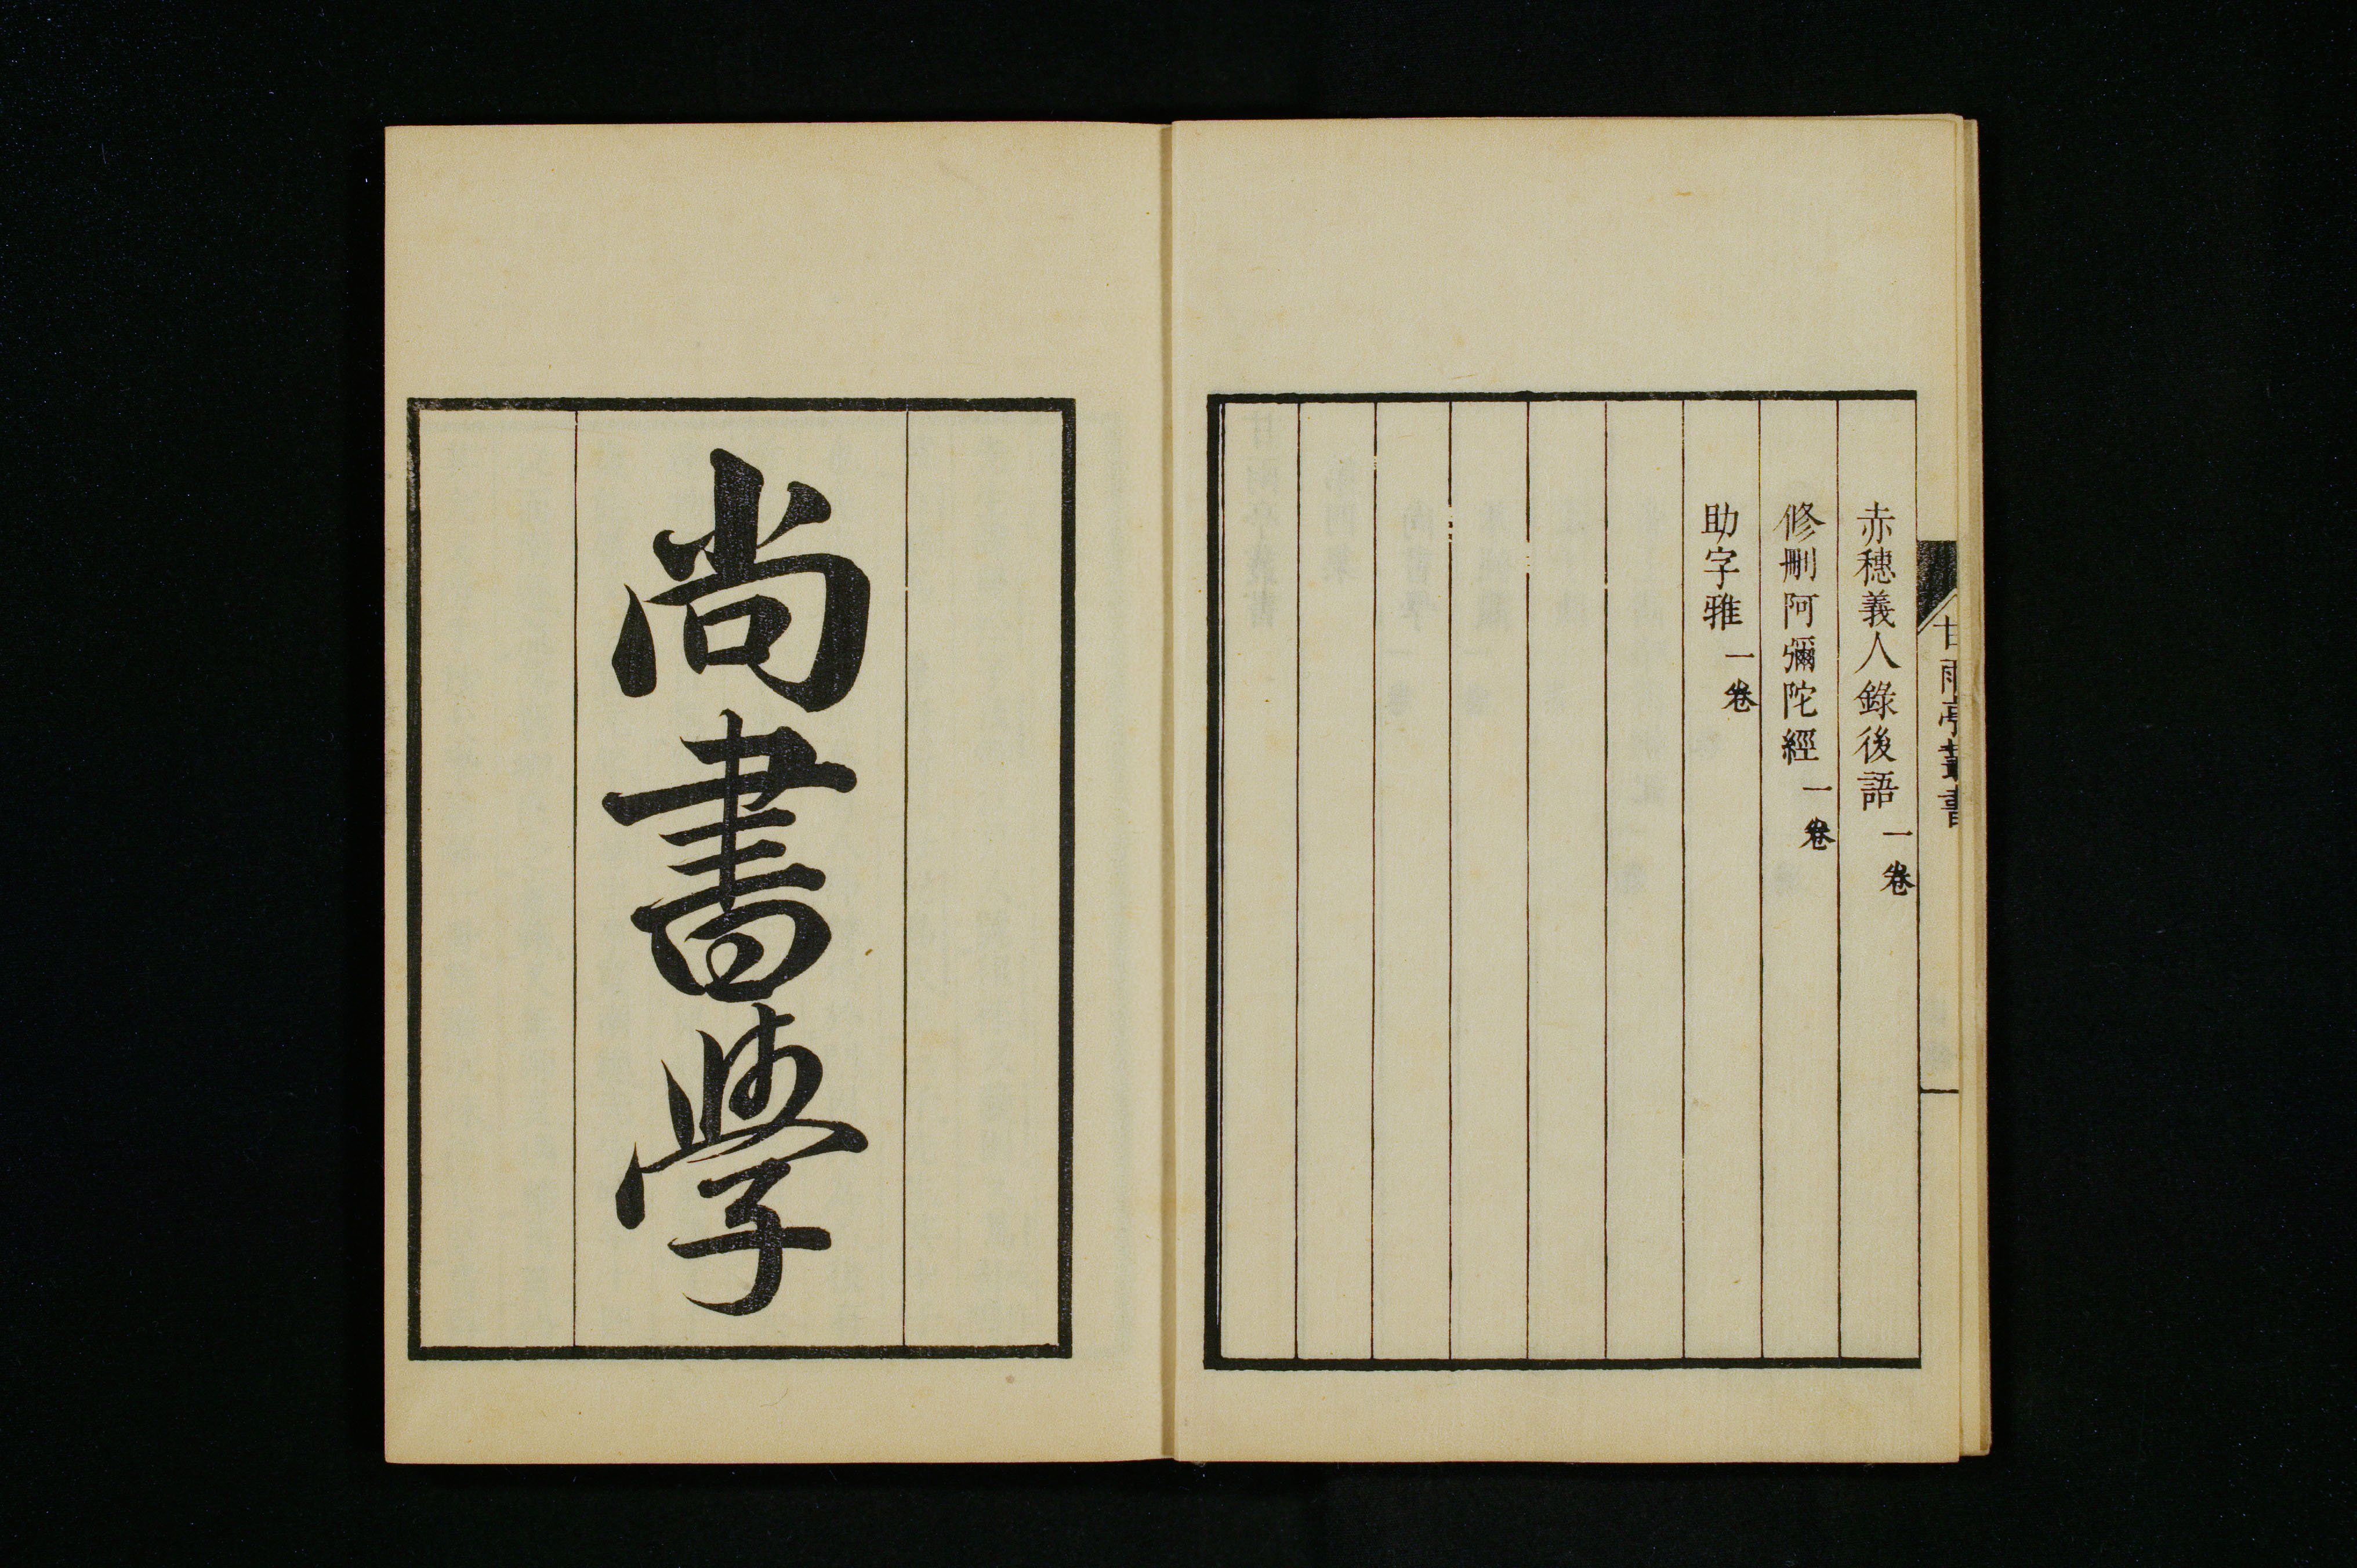 甘雨亭叢書
赤穗義人錄後語一卷
修刪阿彌陀經一卷
助字雅一卷
尚書學